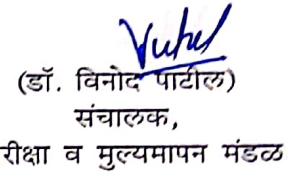 (डॉ. विनोद पाटील)
संचालक,
रीक्षा व मुल्यमापन मंडळ